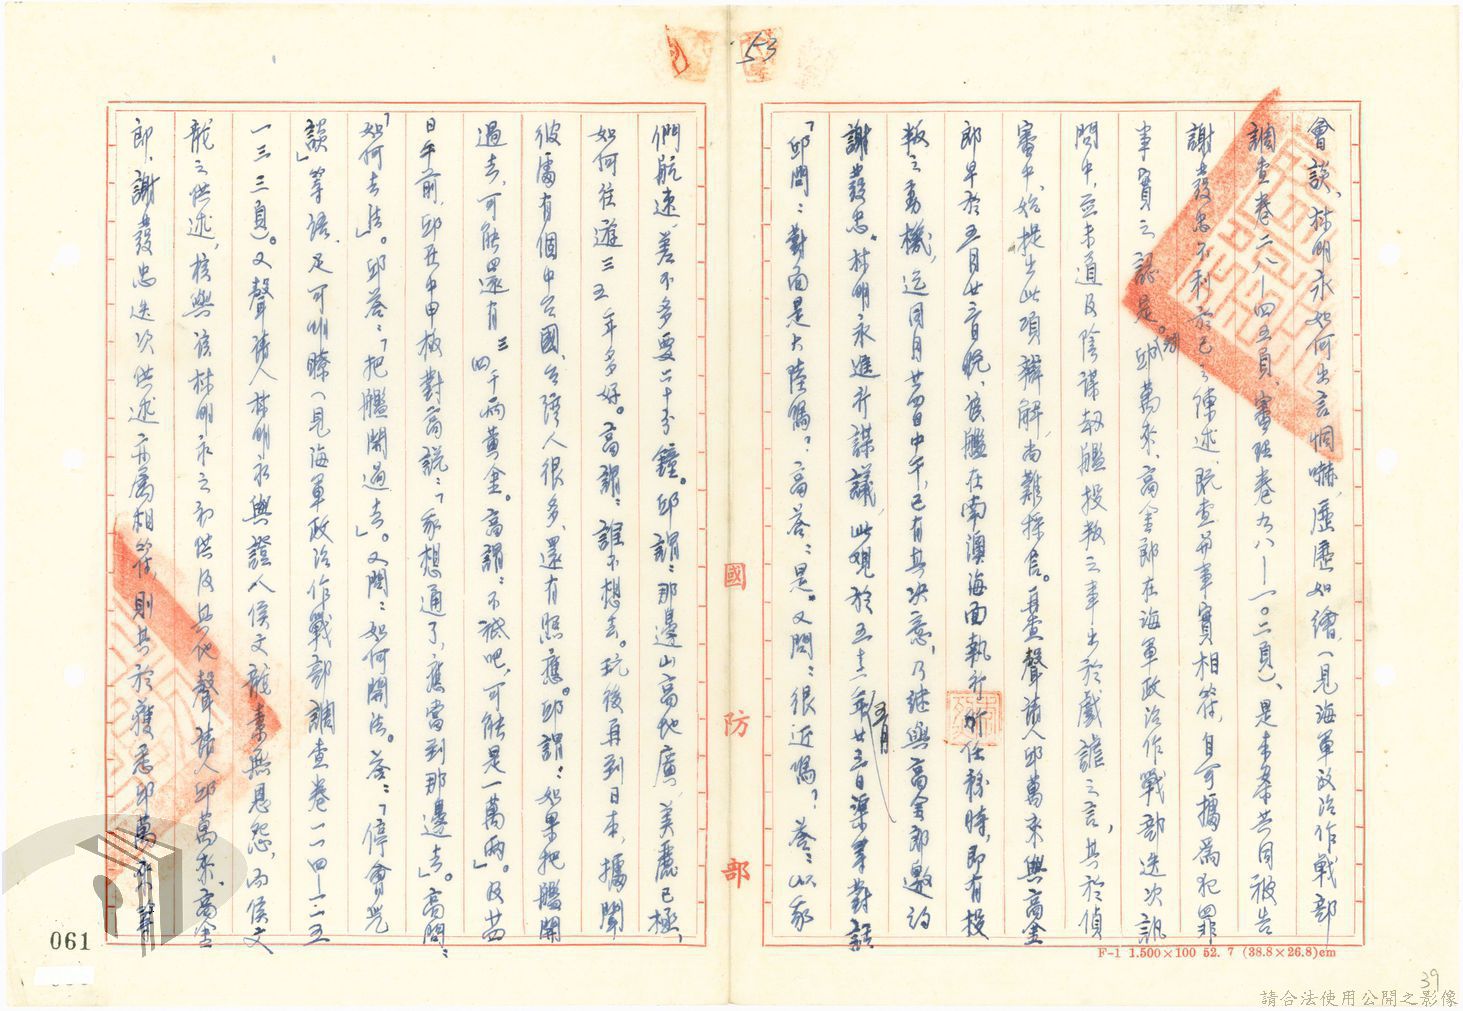 53
會談、林明永如何出言恫嚇，歷歷如繪（見海軍政治作戰部
調查卷二八—四五頁、審理卷九八—一○二頁）、是未參共同被告
謝發忠不利於己之陳述，既查與事實相符，自可據為犯罪
事實之證據。邱萬來、高金郎在海軍政治作戰部迭次訊
問中，並未道及陰謀劫艦投叛之事出於戲謔之言，其於偵
審中，始提出此項辯解，尚難採信。再查聲請人邱萬來與高金
郎早於五月廿三日晚、該艦在南澳海面執行所任務時，即有投
叛之動機，迄同月廿四日中午，已有其決意，乃繼與高金郎邀約
謝發忠、林明永進行謀議，此觀於五十二年五月廿三日渠等對話
「邱問：對面是大陸嗎？高答：是。又問：很近嗎？答：以我
們航速，差不多要六十分鐘。邱謂：那邊山高地廣，美麗已極，
如何往遊三五年多好。高謂：誰不想去。玩後再到日本，據聞
彼處有個中台國、台灣人很多、還有照應。邱謂：如果把艦開
過去，可能還有三四千兩黃金。高謂：不祇吧，可能是一萬兩」。及廿四
日午前，邱在中甲板對高說：「我想通了，應當到那邊去」。高問：
「如何去法」。邱答：「把艦開過去」。又問：如何開法。答：「停會兒
談」等語，足可明瞭（見海軍政治作戰部調查卷一一四—一二五
一三三頁）。又聲請人林明永與證人侯文龍素無恩怨，而侯文
龍之供述，核與該林明永之初供及其他聲請人邱萬來、高金
郎、謝發忠迭次供述亦屬相符，則其於獲悉邱萬來等
國防部
F-1 1.500×100 52. 7 (38.8×26.8)cm
061
39
請合法使用公開之影像